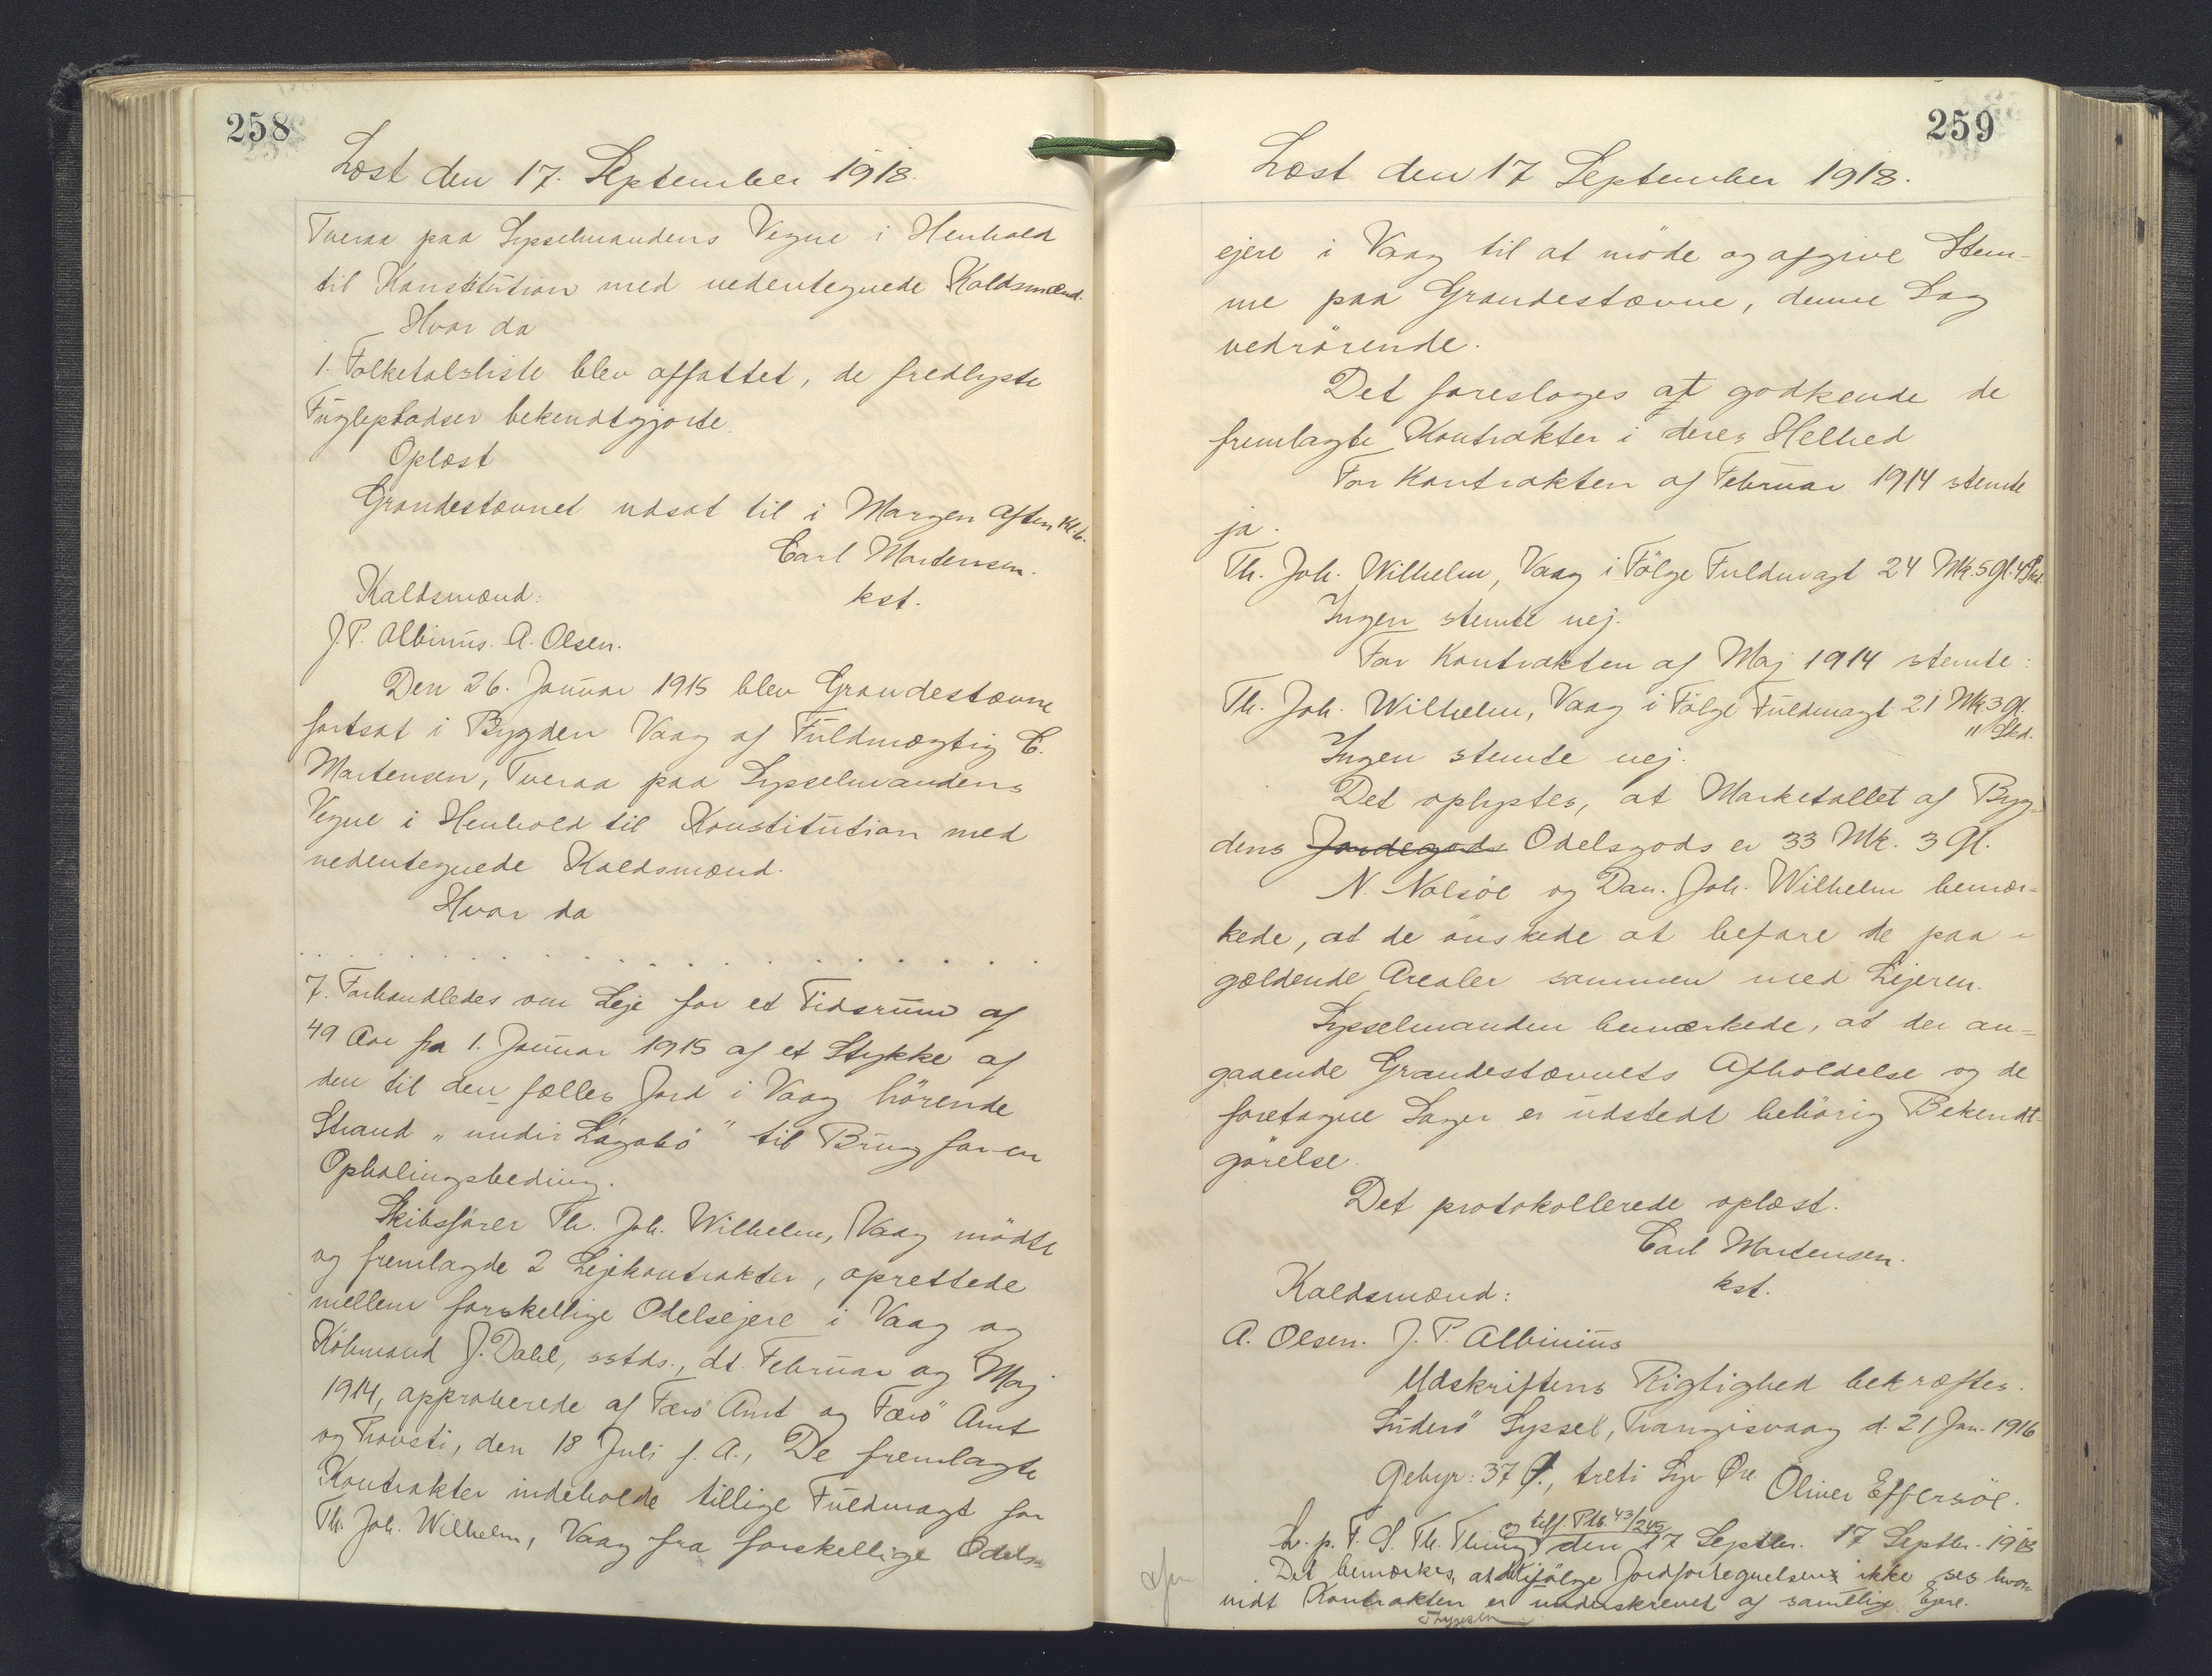 258
Læst den 17. September 1918.
Tveraa paa Sysselmandens Vegne i Henhold
til Konstitution med nedentegnede Kaldsmænd.
Hvor da
1. Folketalsliste blev affattet, de fredlyste
Fuglepladser bekendtgjorte.
Oplæst
Grandestævnet udsat til i Morgen Aften Kl. 6.
Carl Mortensen.
kst.
Kaldsmænd:
J. P. Albinus. A. Olsen.
Den 26. Januar 1915 blev Grandestævne
fortsat i Bygden Vaag af Fuldmægtig C.
Mortensen, Tveraa paa Sysselmandens
Vegne i Henhold til Konstitution med
nedentegnede Kaldsmænd.
Hvor da
. . . . . . . . . . . . . . . . . .
7. Forhandledes om Leje for et Tidsrum af
49 Aar fra 1. Januar 1915 af et Stykke af
den til den fælles Jord i Vaag hörende
Strand "undir Lágabö" til Brug for en
Ophalingsbeding.
Skibsförer Th. Joh. Wilhelm, Vaag mödte
og fremlagde 2 Lejekontrakter, oprettede
mellem forskellige Odelsejere i Vaag og
Köbmand J. Dahl, sstds., dt. Februar og Maj
1914, approberede af Færö Amt og Færö Amt
og Provsti, den 18 Juli f. A., De fremlagte
Kontrakter indeholde tillige Fuldmagt for
Th. Joh. Wilhelm, Vaag fra forskellige Odels-
259
Læst den 17 September 1918.
ejere i Vaag til at möde og afgive Stem-
me paa Grandestævne, denne Sag
vedrörende.
Det foresloges at godkende de
fremlagte Kontrakter i deres Helhed
For Kontrakten af Februar 1914 stemte
ja.
Th. Joh. Wilhelm, Vaag i Fölge Fuldmagt 24 Mk. 5 Gl. 4 Skd.
Ingen stemte nej.
For Kontrakten af Maj 1914 stemte:
Th. Joh. Wilhelm, Vaag i Fölge Fuldmagt 21 Mk. 3 Gl.
" Skd.
Ingen stemte nej.
Det oplystes, at Marketallet af Byg-
dens Jordegods Odelsgods er 33 Mk. 3 Gl.
N. Nolsöe og Dan. Joh. Wilhelm bemær-
kede, at de önskede at befare de paa-
gældende Arealer sammen med Lejeren.
Sysselmanden bemærkede, at der an-
gaaende Grandestævnets Afholdelse og de
foretagne Sager er udstedt behörig Bekendt-
görelse.
Det protokollerede oplæst.
Carl Mortensen.
kst.
Kaldsmænd:
A. Olsen. J. P. Albinus
Udskriftens Rigtighed bekræftes.
Suderö Syssel, Trangisvaag d. 21 Jan. 1916
Gebyr: 37 Ø., treti Syv Øre Oliver Effersöe.
og tilf. Ptb. 43/245
L. p. F. S. Th. Thing den 17 Septbr. 17 Septbr. 1918
Det bemærkes, at det ifölge Jordfortegnelsen ikke ses hvor-
vidt Kontrakten er underskrevet af samtlige Ejere.
Thygesen